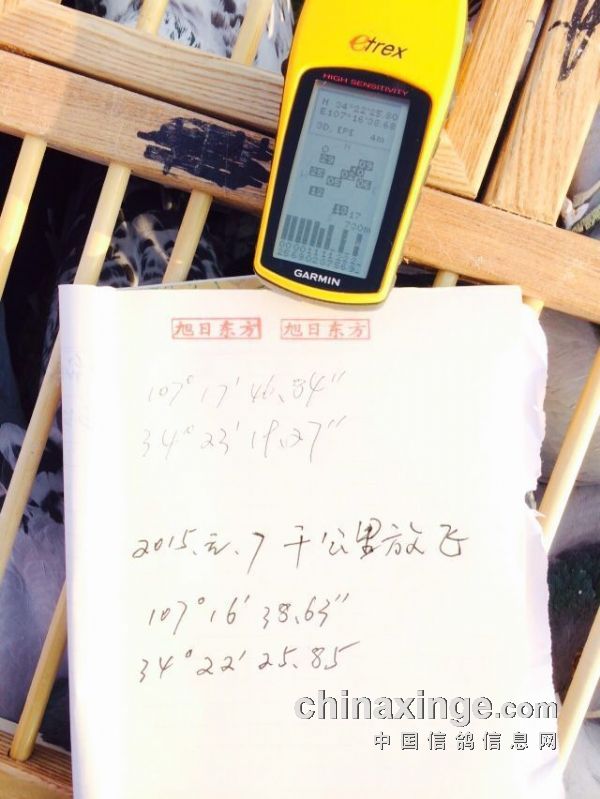 etrex
HIGH SENSITIVITY
N 34°22'25.80
E107°16'38.68
3D, EPE 4m
GARMIN
旭日东方 旭日东方
107° 17' 46.84"
34° 23' 19.27"
千公里放飞
107° 16' 38.63"
34° 22' 25.85
chinaxinge.com
中国信鸽信息网